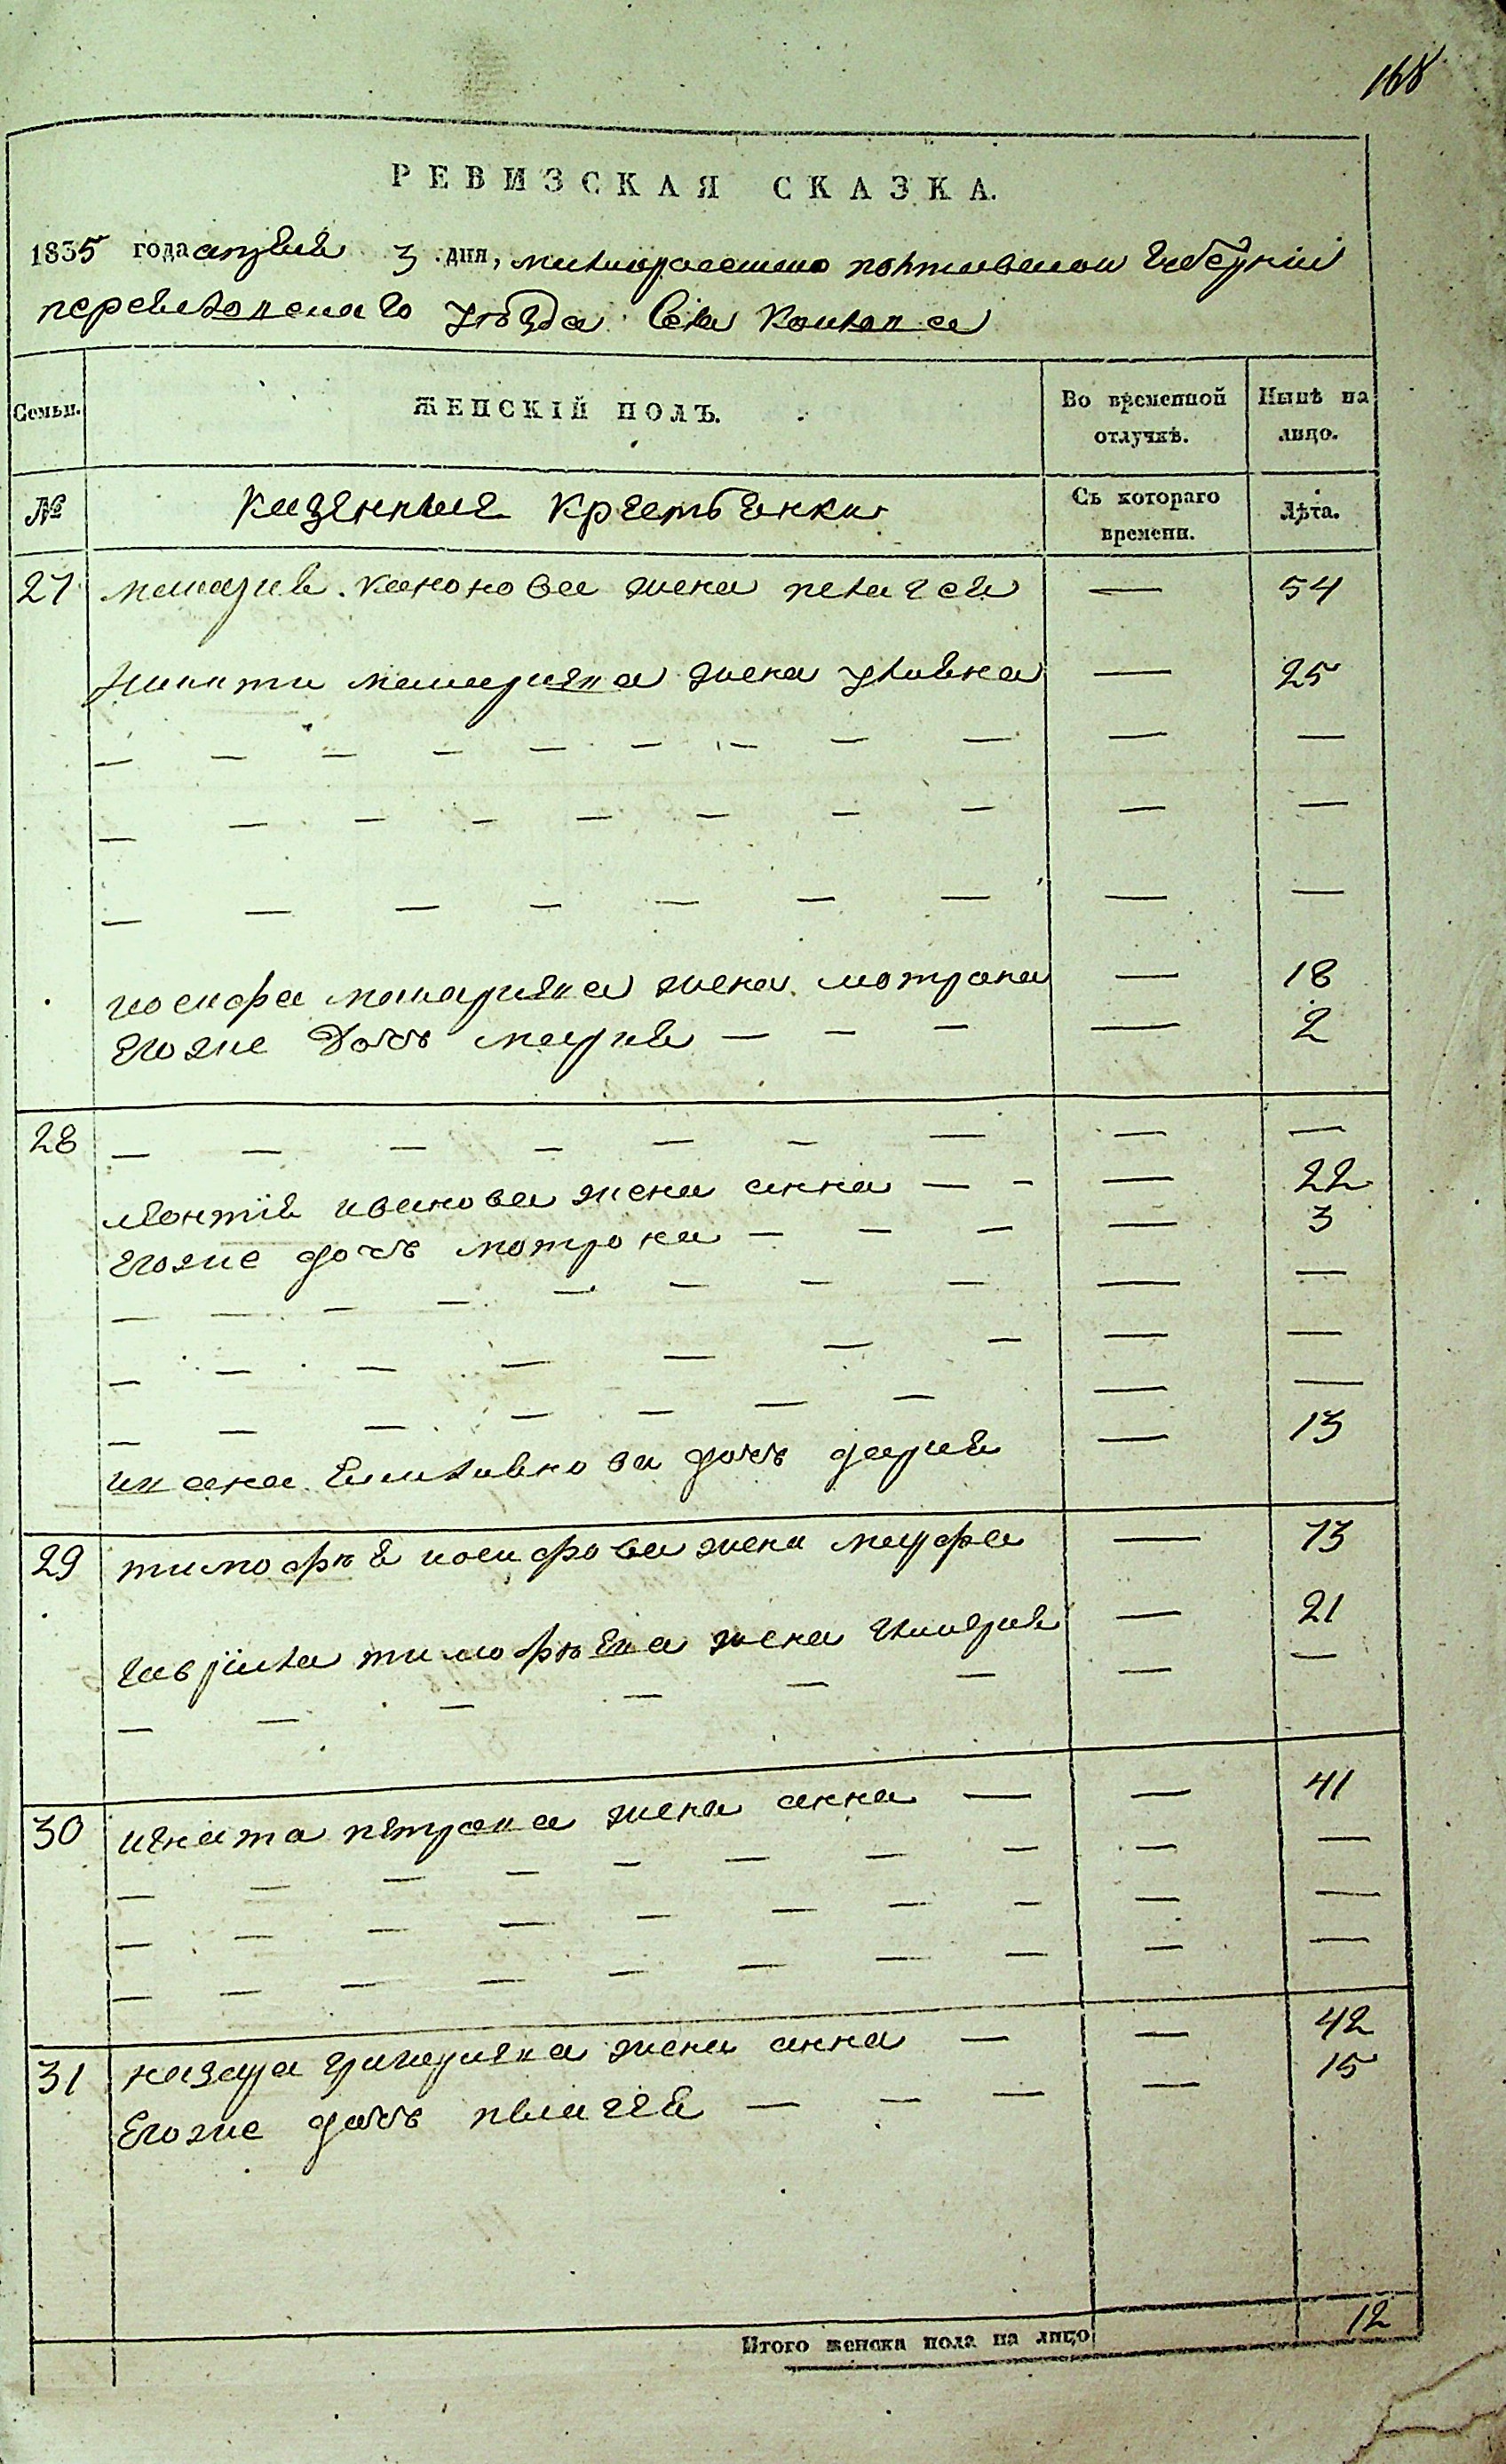 168
РЕВИЗСКАЯ СКАЗКА.
1835 года апреля 3 дня, малороссийско полтавской губернии
переяславскаго уѣзда Села
Семьи. ЖЕНСКІЙ ПОЛЪ. Во временной отлучкѣ. Нынѣ на лицо.
№ Казенные Крестьянки Съ котораго времени. Лѣта.
27 макария кононова жена пелагея — 54
никити макариева жена улияна — 25
— — — — — — — — — — —
— — — — — — — — — —
— — — — — — — — —
иосифа макариева жена мотрона — 18
Егоже Дочь мария — — — — 2
28 — — — — — — — — —
леонтия иванова жена анна — — — 22
Егоже дочь мотрона — — — — 3
— — — — — — — — —
— — — — — — — — —
— — — — — — — — —
ивана Емилианова дочь дария — 13
29 тимофѣя иосифова жена марфа — 73
гавриила тимофѣева жена гликерия — 21
— — — — — — — —
30 игната петрова жена анна — — 41
— — — — — — — — — —
— — — — — — — — — —
— — — — — — — — — —
31 назара григориева жена анна — — 42
Егоже дочь пелагея — — — — 15
Итого женска пола на лицо 12